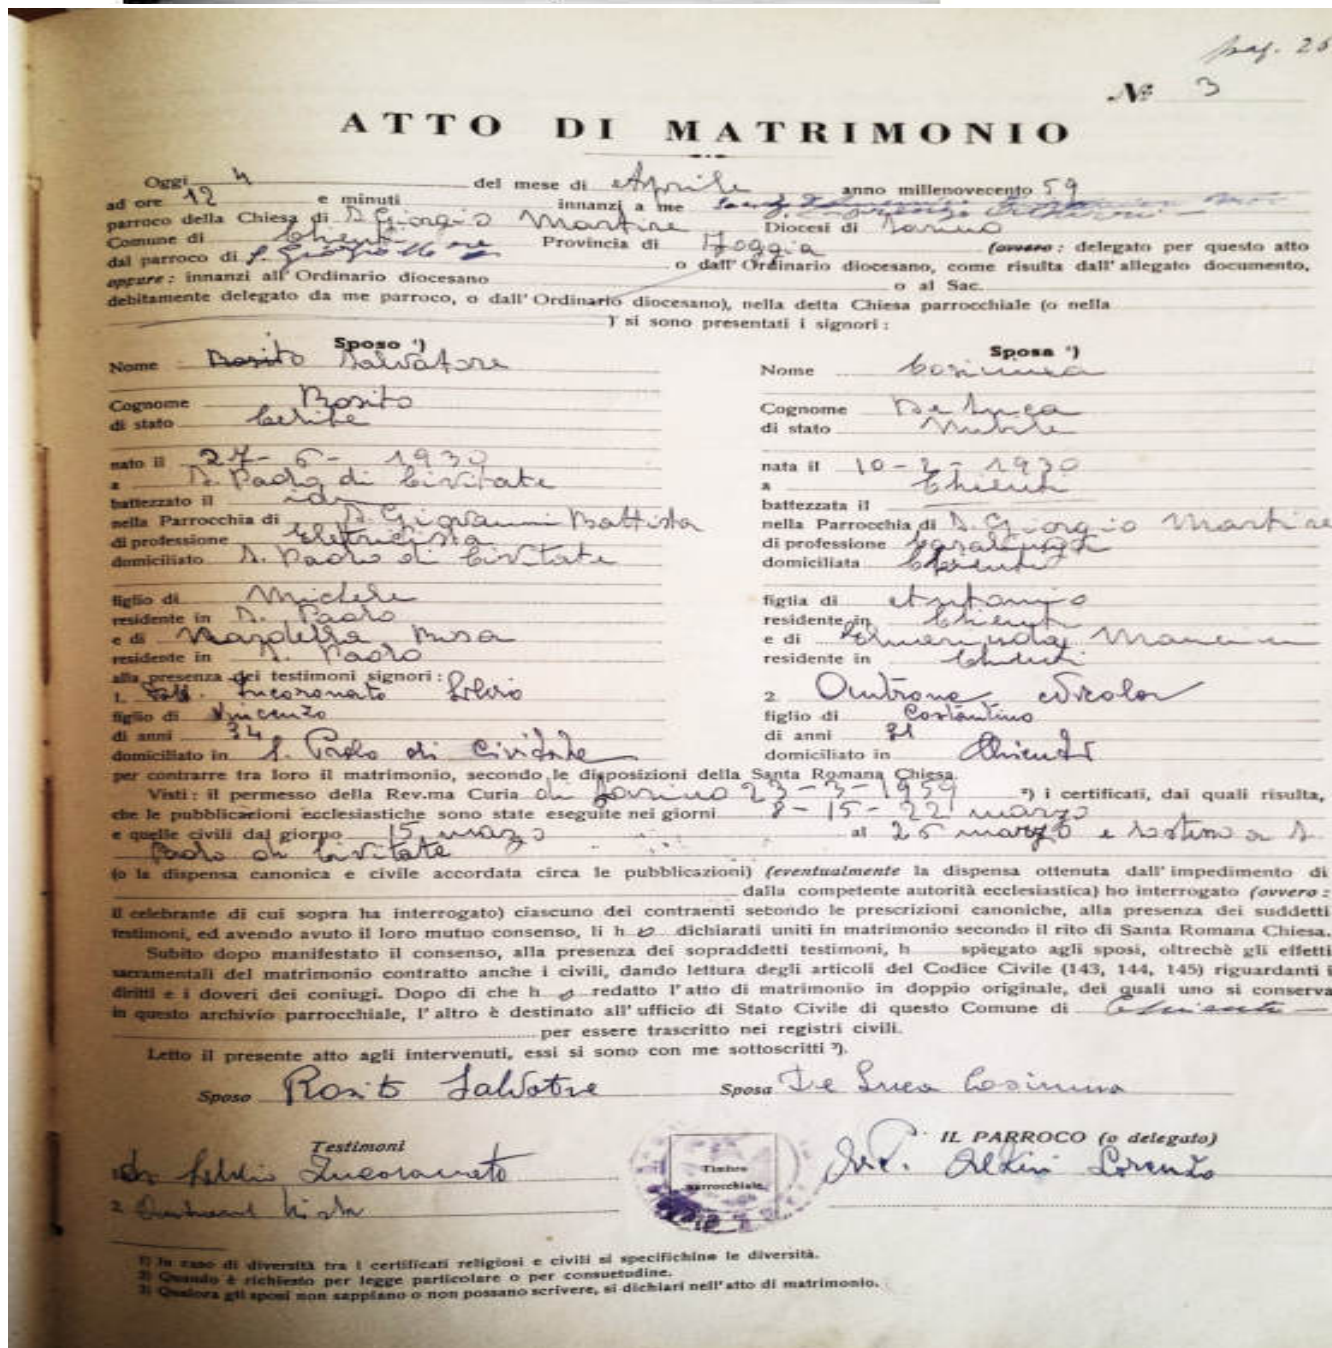 pag. 26
№ 3
ATTO DI MATRIMONIO
Oggi 4 del mese di Aprile anno millenovecento 59
ad ore 12 e minuti innanzi a me
parroco della Chiesa di S. Giorgio Martire Diocesi di Larino
Comune di Chieuti Provincia di Foggia (ovvero: delegato per questo atto
dal parroco di S. Giorgio o dall'Ordinario diocesano, come risulta dall'allegato documento,
oppure: innanzi all'Ordinario diocesano o al Sac.
debitamente delegato da me parroco, o dall'Ordinario diocesano), nella detta Chiesa parrocchiale (o nella
) si sono presentati i signori:
Sposo ¹)
Nome Rosito Salvatore
Cognome Rosito
di stato Celibe
nato il 27-6-1930
a S. Paolo di Civitate
battezzato il
nella Parrocchia di S. Giovanni Battista
di professione Elettricista
domiciliato S. Paolo di Civitate
figlio di Michele
residente in S. Paolo
e di Nardella
residente in S. Paolo
Sposa ¹)
Nome Cosimina
Cognome De Luca
di stato Nubile
nata il 10-2-1930
a Chieuti
battezzata il
nella Parrocchia di S. Giorgio Martire
di professione Casalinga
domiciliata Chieuti
figlia di Antonio
residente in Chieuti
e di
residente in Chieuti
alla presenza dei testimoni signori:
1. Incoronato Silvio
figlio di Vincenzo
di anni 34
domiciliato in S. Paolo di Civitate
2 Nicola
figlio di Costantino
di anni 31
domiciliato in Chieuti
per contrarre tra loro il matrimonio, secondo le disposizioni della Santa Romana Chiesa.
Visti: il permesso della Rev.ma Curia di Larino 23-3-1959 ²) i certificati, dai quali risulta,
che le pubblicazioni ecclesiastiche sono state eseguite nei giorni 8-15-22 marzo
e quelle civili dal giorno 15 marzo al 26 marzo e a S.
Paolo di Civitate
(o la dispensa canonica e civile accordata circa le pubblicazioni) (eventualmente la dispensa ottenuta dall'impedimento di
dalla competente autorità ecclesiastica) ho interrogato (ovvero:
il celebrante di cui sopra ha interrogato) ciascuno dei contraenti secondo le prescrizioni canoniche, alla presenza dei suddetti
testimoni, ed avendo avuto il loro mutuo consenso, li h o dichiarati uniti in matrimonio secondo il rito di Santa Romana Chiesa.
Subito dopo manifestato il consenso, alla presenza dei sopraddetti testimoni, h spiegato agli sposi, oltrechè gli effetti
sacramentali del matrimonio contratto anche i civili, dando lettura degli articoli del Codice Civile (143, 144, 145) riguardanti i
diritti e i doveri dei coniugi. Dopo di che h o redatto l'atto di matrimonio in doppio originale, dei quali uno si conserva
in questo archivio parrocchiale, l'altro è destinato all'ufficio di Stato Civile di questo Comune di Chieuti
per essere trascritto nei registri civili.
Letto il presente atto agli intervenuti, essi si sono con me sottoscritti ³).
Sposo Rosito Salvatore Sposa De Luca Cosimina
Testimoni
Incoronato
2
Timbro
parrocchiale
IL PARROCO (o delegato)
Lorenzo
1) In caso di diversità tra i certificati religiosi e civili si specifichino le diversità.
2) Quando è richiesto per legge particolare o per consuetudine.
3) Qualora gli sposi non sappiano o non possano scrivere, si dichiari nell'atto di matrimonio.